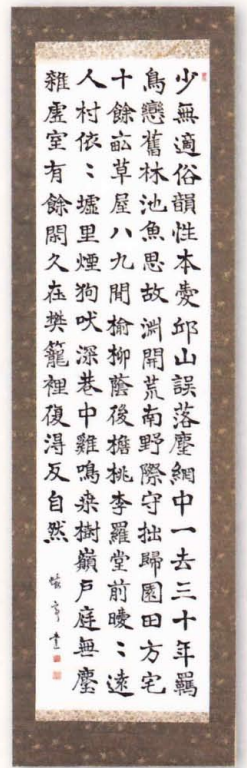 少無適俗韻性本愛邱山誤落塵網中一去三十年羈
鳥戀舊林池魚思故淵開荒南野際守拙歸園田方宅
十餘畝草屋八九間榆柳蔭後檐桃李羅堂前曖〻遠
人村依〻墟里煙狗吠深巷中雞鳴桑樹巔戶庭無塵
雜虛室有餘閑久在樊籠裡復得反自然